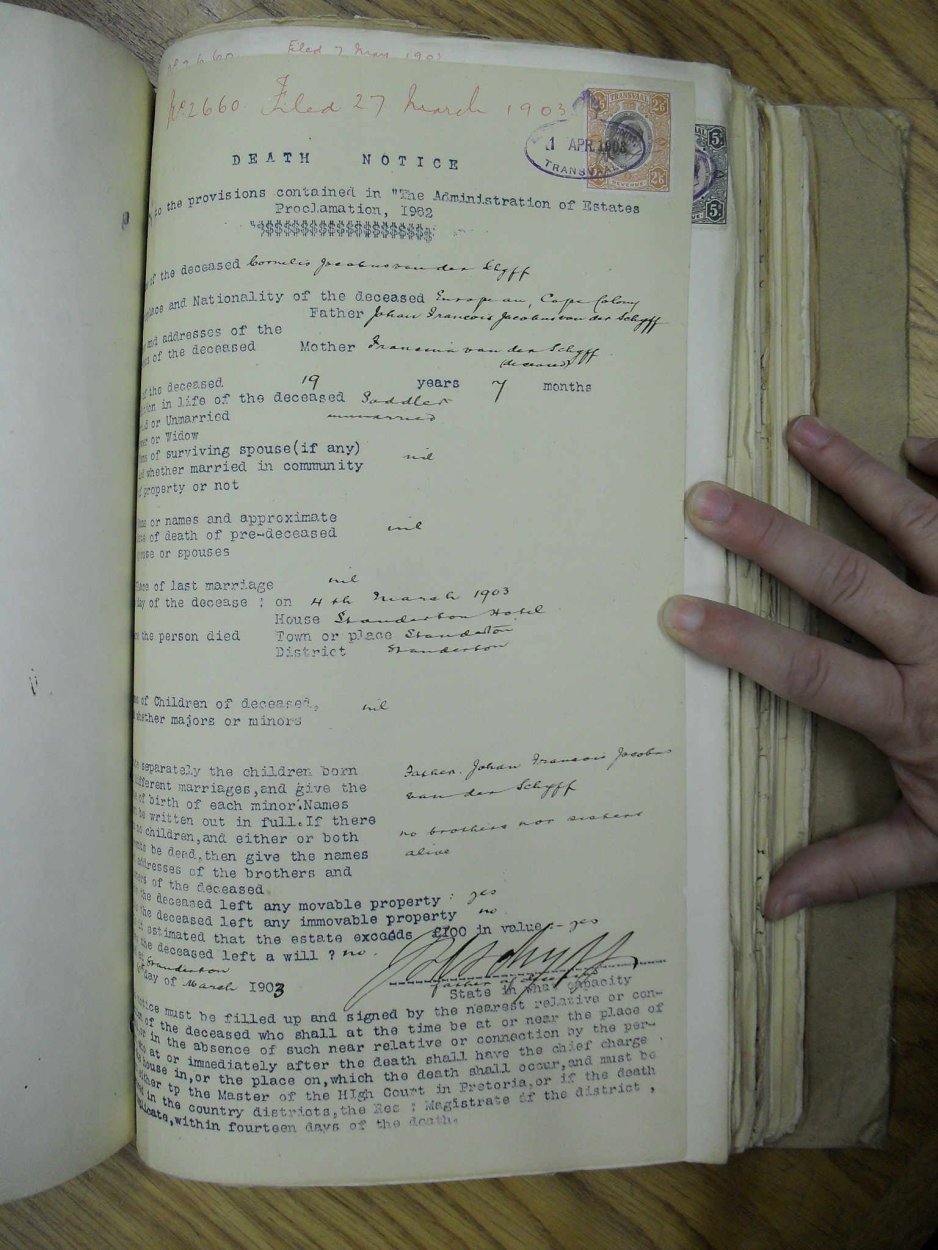 No 2660. Filed 27 March 1903
TRANSVAAL
2/6 2/6
1 APR 1903
TRANSVAAL
REVENUE
2/6 2/6
5/-
5/-
DEATH NOTICE
to the provisions contained in "The Administration of Estates
Proclamation, 1902
"$$$$$$$$$$$$$$$$$
of the deceased Cornelis Jacobus van der Schyff
place and Nationality of the deceased European, Cape Colony
Father Johan Francois Jacobus van der Schyff
and addresses of the
of the deceased Mother Fransina van der Schyff
(deceased)
of the deceased 19 years 7 months
in life of the deceased Saddler
or Unmarried unmarried
or Widow
of surviving spouse(if any) nil
whether married in community
property or not
or names and approximate
of death of pre-deceased nil
or spouses
Place of last marriage nil
day of the decease : on 4th March 1903
House Standerton Hotel
the person died Town or place Standerton
District Standerton
of Children of deceased, nil
whether majors or minors
separately the children born Father. Johan Francois Jacobus
different marriages,and give the van der Schyff
of birth of each minor.Names
be written out in full.If there no brothers nor sisters
no children,and either or both alive
be dead,then give the names
addresses of the brothers and
of the deceased
the deceased left any movable property : yes
the deceased left any immovable property no
estimated that the estate exceeds £100 in value - yes
the deceased left a will ? no.
at Standerton
day of March 1903
Father of deceased
State in what capacity
notice must be filled up and signed by the nearest relative or con-
of the deceased who shall at the time be at or near the place of
or in the absence of such near relative or connection by the per-
at or immediately after the death shall have the chief charge
house in,or the place on,which the death shall occur,and must be
either tp the Master of the HIgh Court in Pretoria,or if the death
in the country districts,the Res : Magistrate of the district ,
within fourteen days of the death.